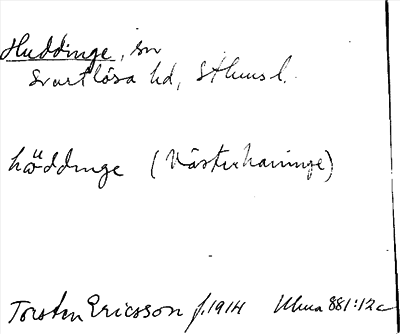 Huddinge, sn
Svartlösa hd, Sthms l.
hüddinge (Västerhaninge)
Torsten Ericsson f. 1914 Uma 881:12c